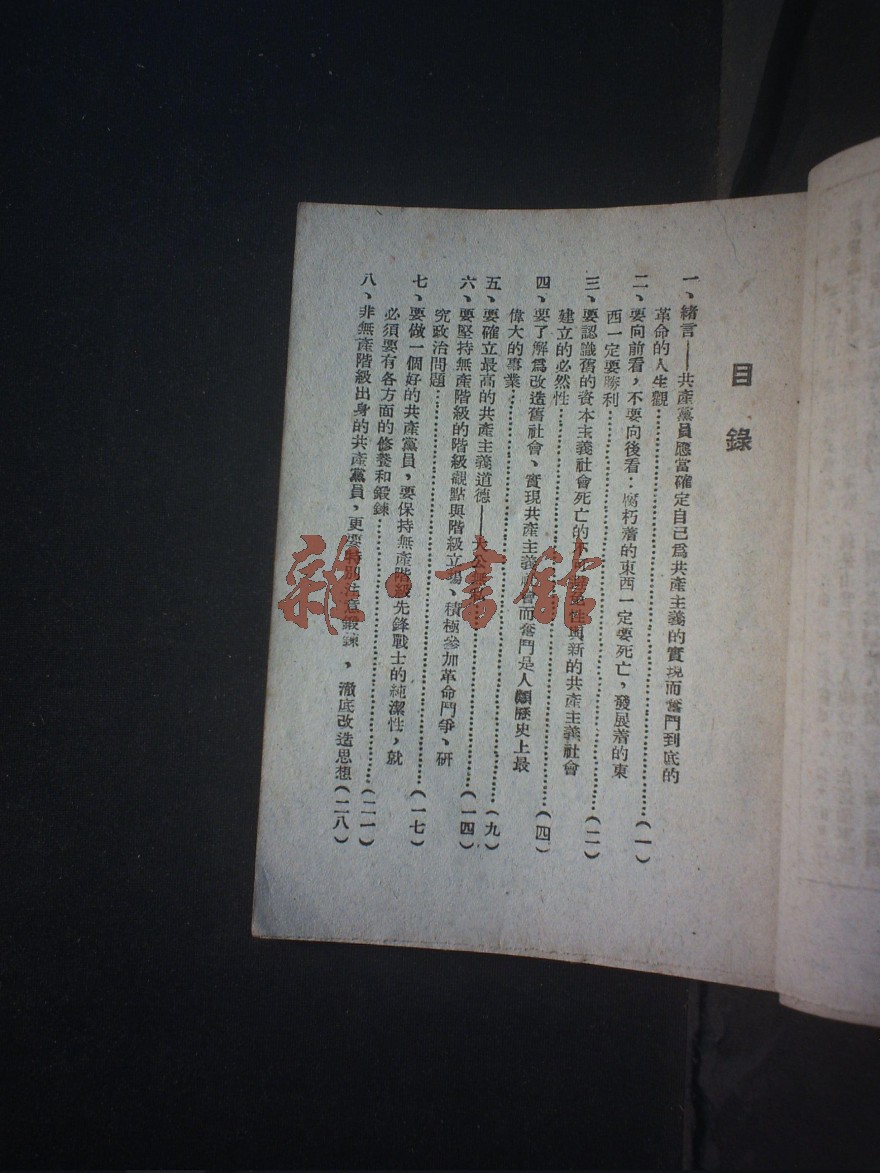 目錄
一、緒言——共產黨員應當確定自己爲共產主義的實現而奮鬥到底的
革命的人生觀……(一)
二、要向前看，不要向後看：腐朽著的東西一定要死亡，發展着的東
西一定要勝利……(二)
三、要認識舊的資本主義社會死亡的不可避免性與新的共產主義社會
建立的必然性……(四)
四、要了解爲改造舊社會、實現共產主義社會而奮鬥是人類歷史上最
偉大的事業……(九)
五、要確立最高的共產主義道德——大公無私……(一四)
六、要堅持無產階級的階級觀點與階級立場、積極參加革命鬥爭、研
究政治問題……(一七)
七、要做一個好的共產黨員，要保持無產階級先鋒戰士的純潔性，就
必須要有各方面的修養和鍛鍊……(二一)
八、非無產階級出身的共產黨員，更要特別注意鍛鍊，澈底改造思想(二八)
雜·書館